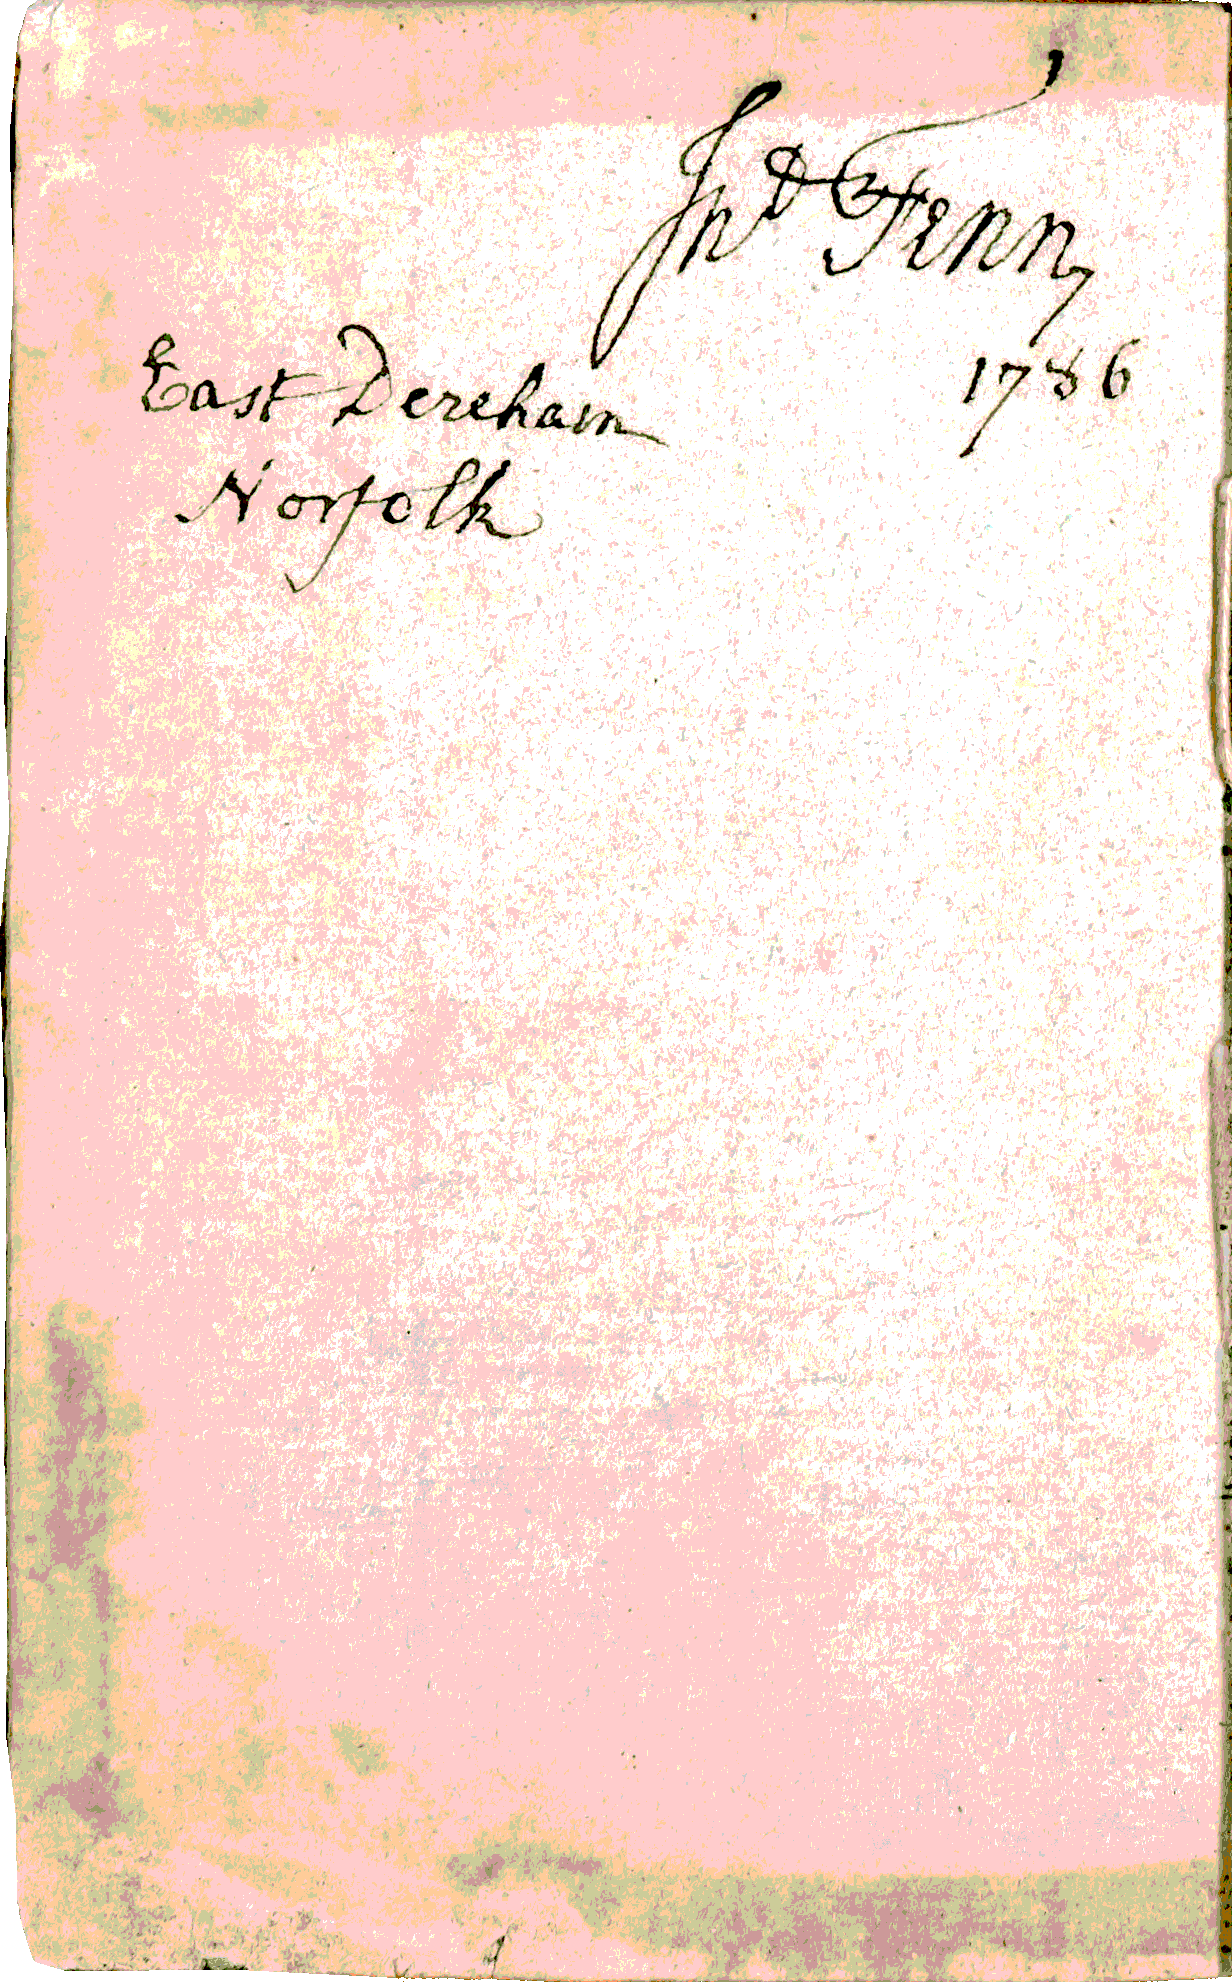 Jno Fenn
1786
East Dereham
Norfolk